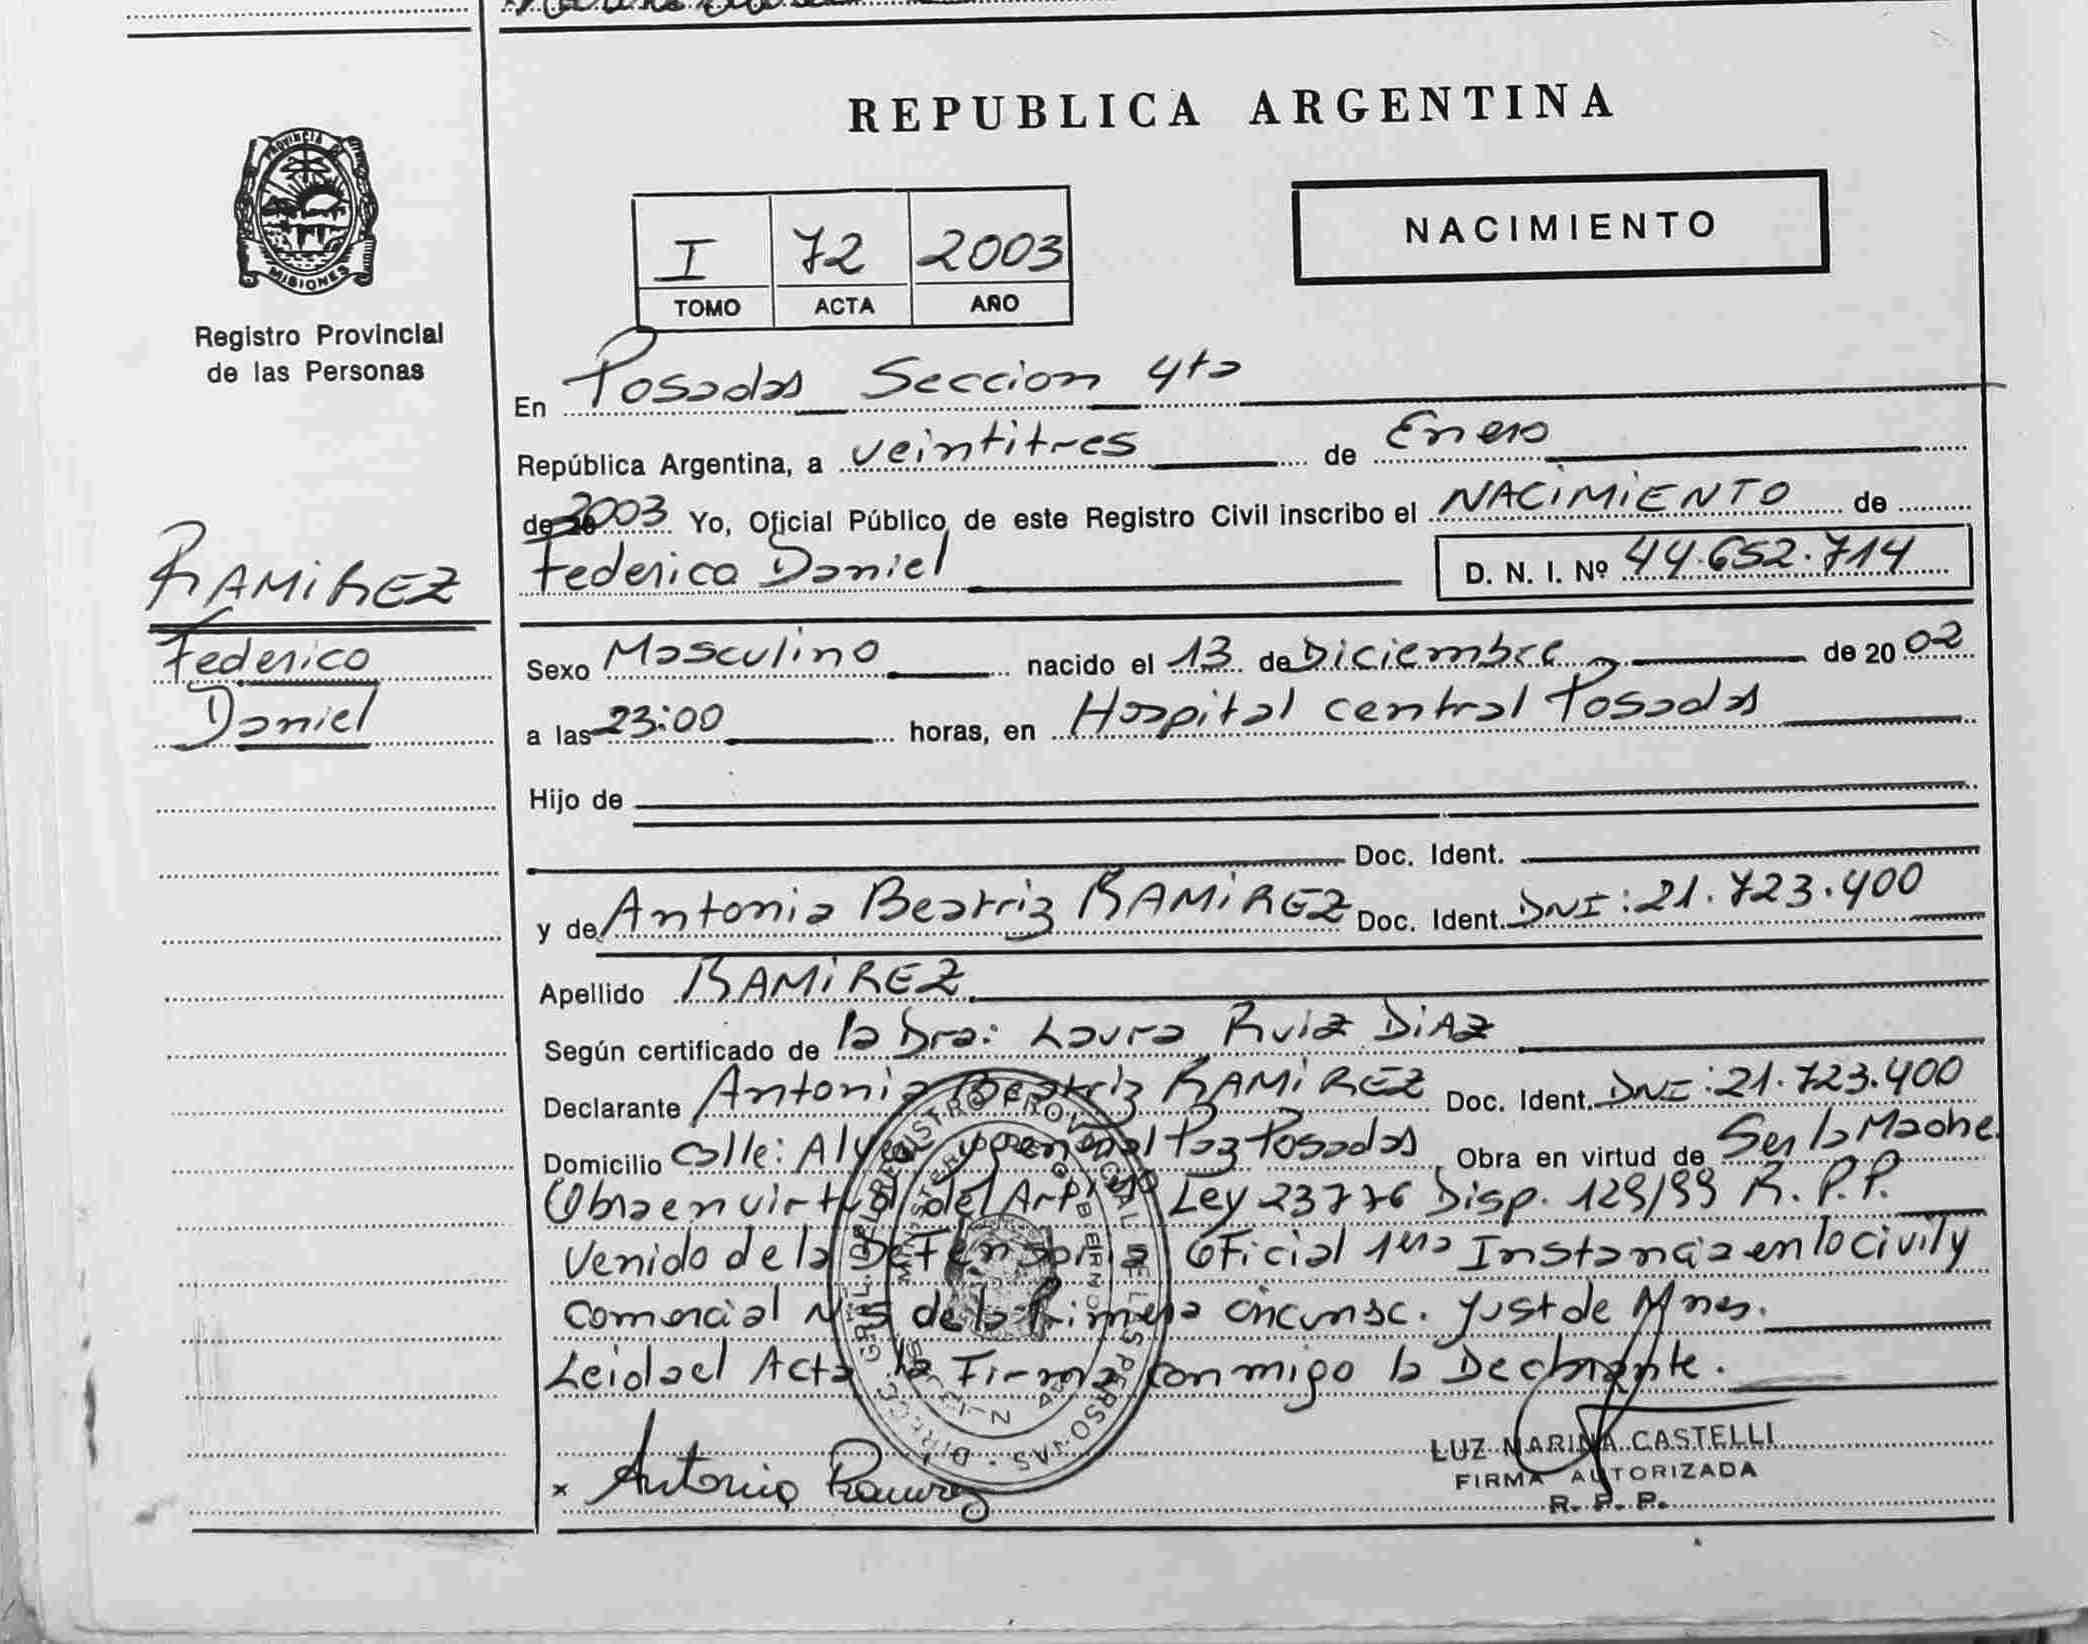 REPUBLICA ARGENTINA
PROVINCIA DE
MISIONES
Registro Provincial
de las Personas
NACIMIENTO
I 72 2003
TOMO ACTA AÑO
En Posadas Seccion 4ta
República Argentina, a veintitres de Enero
de 2003 Yo, Oficial Público de este Registro Civil inscribo el NACIMIENTO de
Federico Daniel D. N. I. Nº 44.652.714
RAMIREZ
Federico
Daniel
Sexo Masculino nacido el 13 de Diciembre de 2002
a las 23:00 horas, en Hospital central Posadas
Hijo de
Doc. Ident.
y de Antonia Beatriz RAMIREZ Doc. Ident. DNI: 21.723.400
Apellido RAMIREZ
Según certificado de la Dra: Laura Ruiz DIAZ
Declarante Antonia Beatriz RAMIREZ Doc. Ident. DNI: 21.723.400
Domicilio calle: y General Paz Posadas Obra en virtud de Ser la Madre.
Obra en virtud del Art Ley 23776 Disp. 129/99 R.P.P.
venido de la Defensoria Oficial 1era Instancia en lo civil y
comercial de la Primera circunsc. Just de Mnes.
Leida el Acta la Firma conmigo la Declarante.
x Antonia Ramirez
LUZ MARINA CASTELLI
FIRMA AUTORIZADA
R. P. P.
REGISTRO PROVINCIAL DE LAS PERSONAS